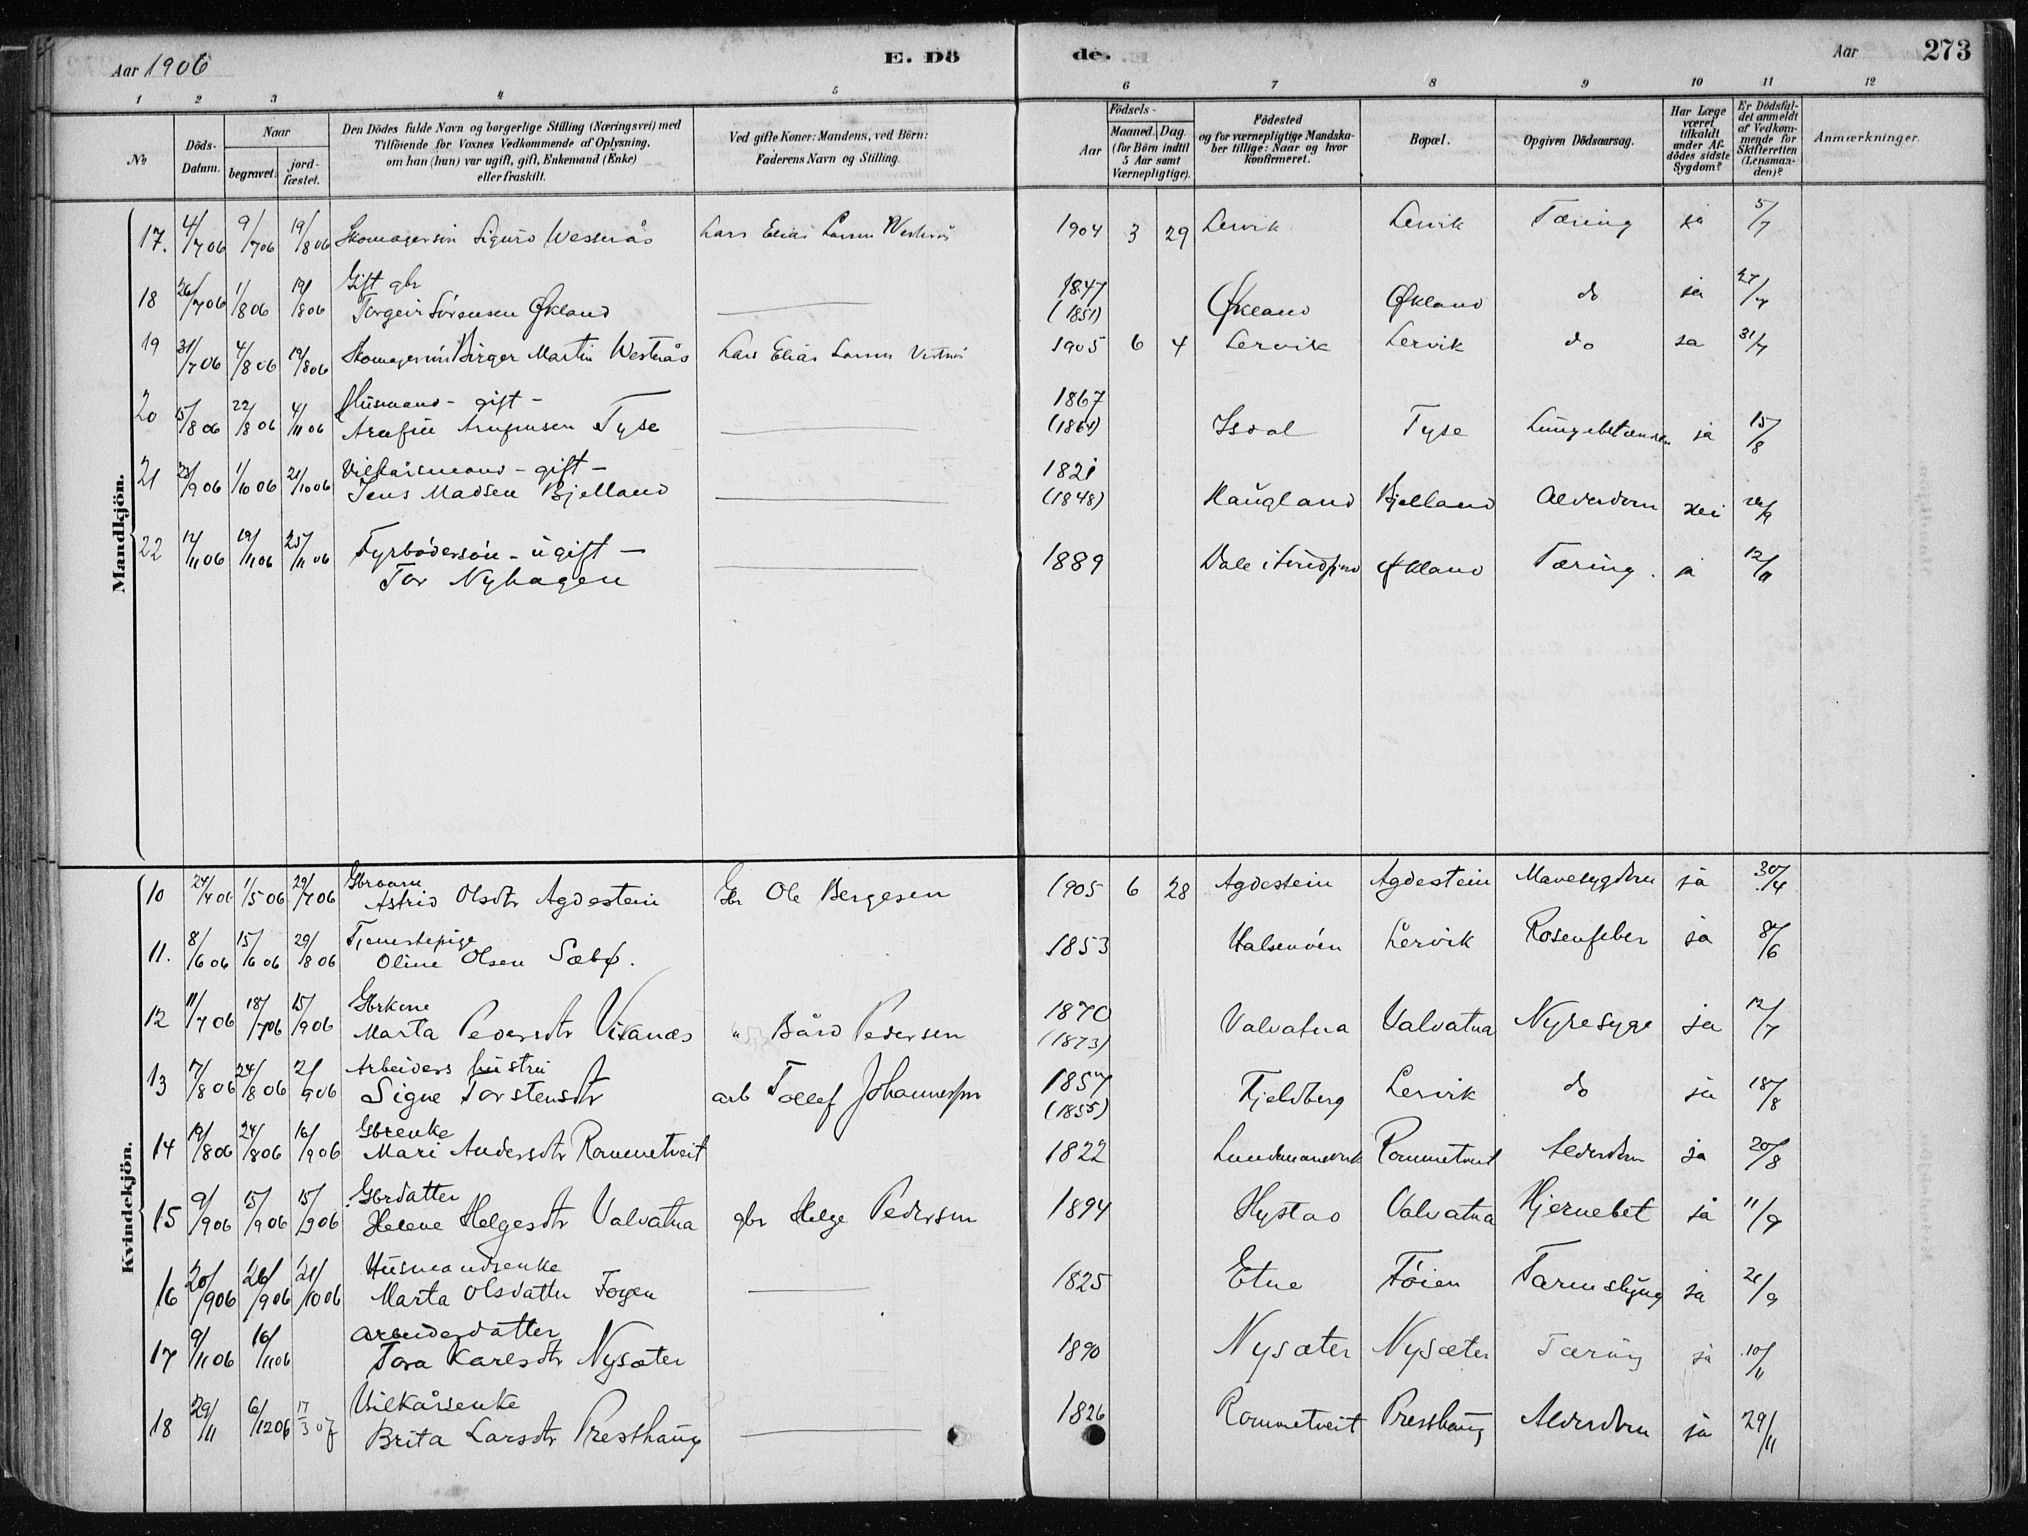 Aar 1906
E. Dö
de.
Aar
273
1 2 3 4 5 6 7 8 9 10 11 12
No
Döds-Datum.
Naar
begravet.
jord-fæstet.
Den Dödes fulde Navn og borgerlige Stilling (Næringsvei) med
Tilföiende for Voxnes Vedkommende af Oplysning,
om han (hun) var ugift, gift, Enkemand (Enke)
eller fraskilt.
Ved gifte Koner: Mandens, ved Börn:
Faderens Navn og Stilling.
Födsels-
Aar
Maaned. Dag.
(for Börn indtil
5 Aar samt
Værnepligtige).
Födested
og for værnepligtige Mandska-
ber tillige: Naar og hvor
konfirmeret.
Bopæl.
Opgiven Dödsaarsag.
Har Læge
været
tilkaldt
under Af-
dödes sidste
Sygdom?
Er Dödsfal-
det anmeldt
af Vedkom-
mende for
Skifteretten
(Lensman-
den)?
Anmærkninger.
Mandkjön.
17. 4/7 06 9/7 06 19/8 06 Skomagersön Sigurd Westerås Lars Elias Larsen Westerås 1904 3 29 Lervik Lervik Tæring ja 5/7
Gift gbr
18 26/7 06 1/8 06 19/8 06 Torgeir Sørensen Økland 1847 (1851) Økland Økland do ja 27/7
19 31/7 06 4/8 06 19/8 06 Skomagersön Birger Martin Westerås Lars Elias Larsen 1905 6 4 Lervik Lervik do ja 31/7
Husmand - gift -
20 15/8 06 22/8 06 4/11 06 Arnfin Arnfinsen Tyse 1867 (1864) Isdal Tyse ja 15/8
Vilkårsmand - gift -
21 23/9 06 1/10 06 21/10 06 Jens Madsen Bjelland 1821 (1848) Haugland Bjelland Alderdom nei
Fyrbødersön - ugift -
22 12/11 06 19/11 06 25/11 06 Tor Nyhagen 1889 Dale i Søndfjord Økland Tæring. ja 12/11
Kvindekjön.
Gbrbarn
10 24/4 06 1/5 06 29/7 06 Astrid Olsdtr Agdestein Gbr Ole Bergesen 1905 6 28 Agdestein Agdestein Mavesygdom ja 30/4
Tjenestepige
11. 8/6 06 15/6 06 29/8 06 Oline Olsen Sæbø. 1853 Halsenöen Lervik Rosenfeber ja 8/6
Gbrkone
12 11/7 06 18/7 06 15/9 06 Marta Pedersdtr Vikanes " Bård Pedersen 1870 (1873) Valvatna Valvatna Nyresyge ja 12/7
Arbeiders hustru
13 17/8 06 24/8 06 2/9 06 Signe Torstensdtr arb Tollef Johannessen 1857 (1855) Fjeldberg Lervik do ja 18/8
Gbrenke
14 19/8 06 24/8 06 16/9 06 Mari Andersdtr Rommetveit 1822 Rommetveit Alderdom ja 20/8
Gbrdatter
15 9/9 06 15/9 06 15/9 06 Helene Helgesdtr Valvatna gbr Helge Pedersen 1894 Hystad Valvatna Hjernebet ja 11/9
Husmandsenke
16 20/9 06 26/9 06 21/10 06 Marta Olsdatter Foyen 1825 Etne Föien Tarmslyng ja 21/9
Arbeiderdatter
17 9/11 06 16/11 06 Tora Karlsdtr Nysæter 1890 Nysæter Nysæter Tæring ja 10/11
Vilkårsenke
18 29/11 6/12 06 17/3 07 Brita Larsdtr Presthaug 1826 Rommetveit Presthaug Alderdom ja 29/11